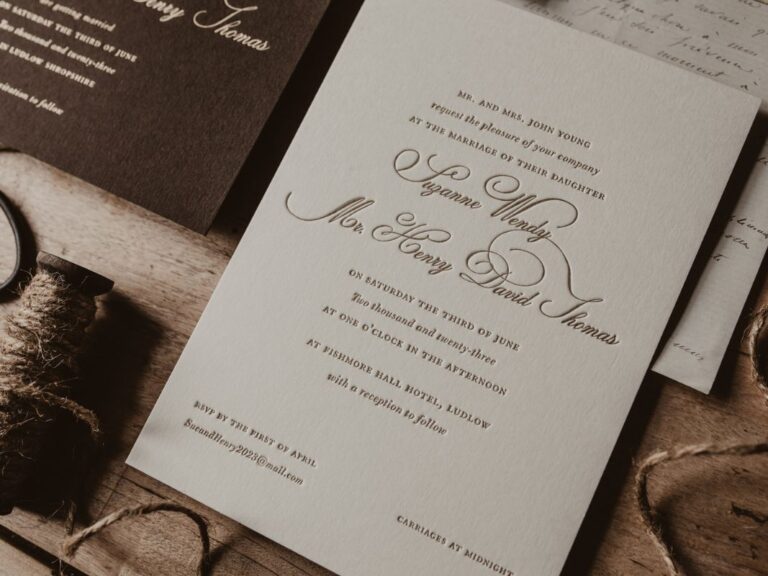 Henry Thomas
are getting married
ON SATURDAY THE THIRD OF JUNE
Two thousand and twenty-three
IN LUDLOW SHROPSHIRE
invitation to follow
MR. AND MRS. JOHN YOUNG
request the pleasure of your company
AT THE MARRIAGE OF THEIR DAUGHTER
Suzanne Wendy
Mr. Henry David Thomas
ON SATURDAY THE THIRD OF JUNE
Two thousand and twenty-three
AT ONE O'CLOCK IN THE AFTERNOON
AT FISHMORE HALL HOTEL, LUDLOW
with a reception to follow
RSVP BY THE FIRST OF APRIL
SueandHenry2023@mail.com
CARRIAGES AT MIDNIGHT